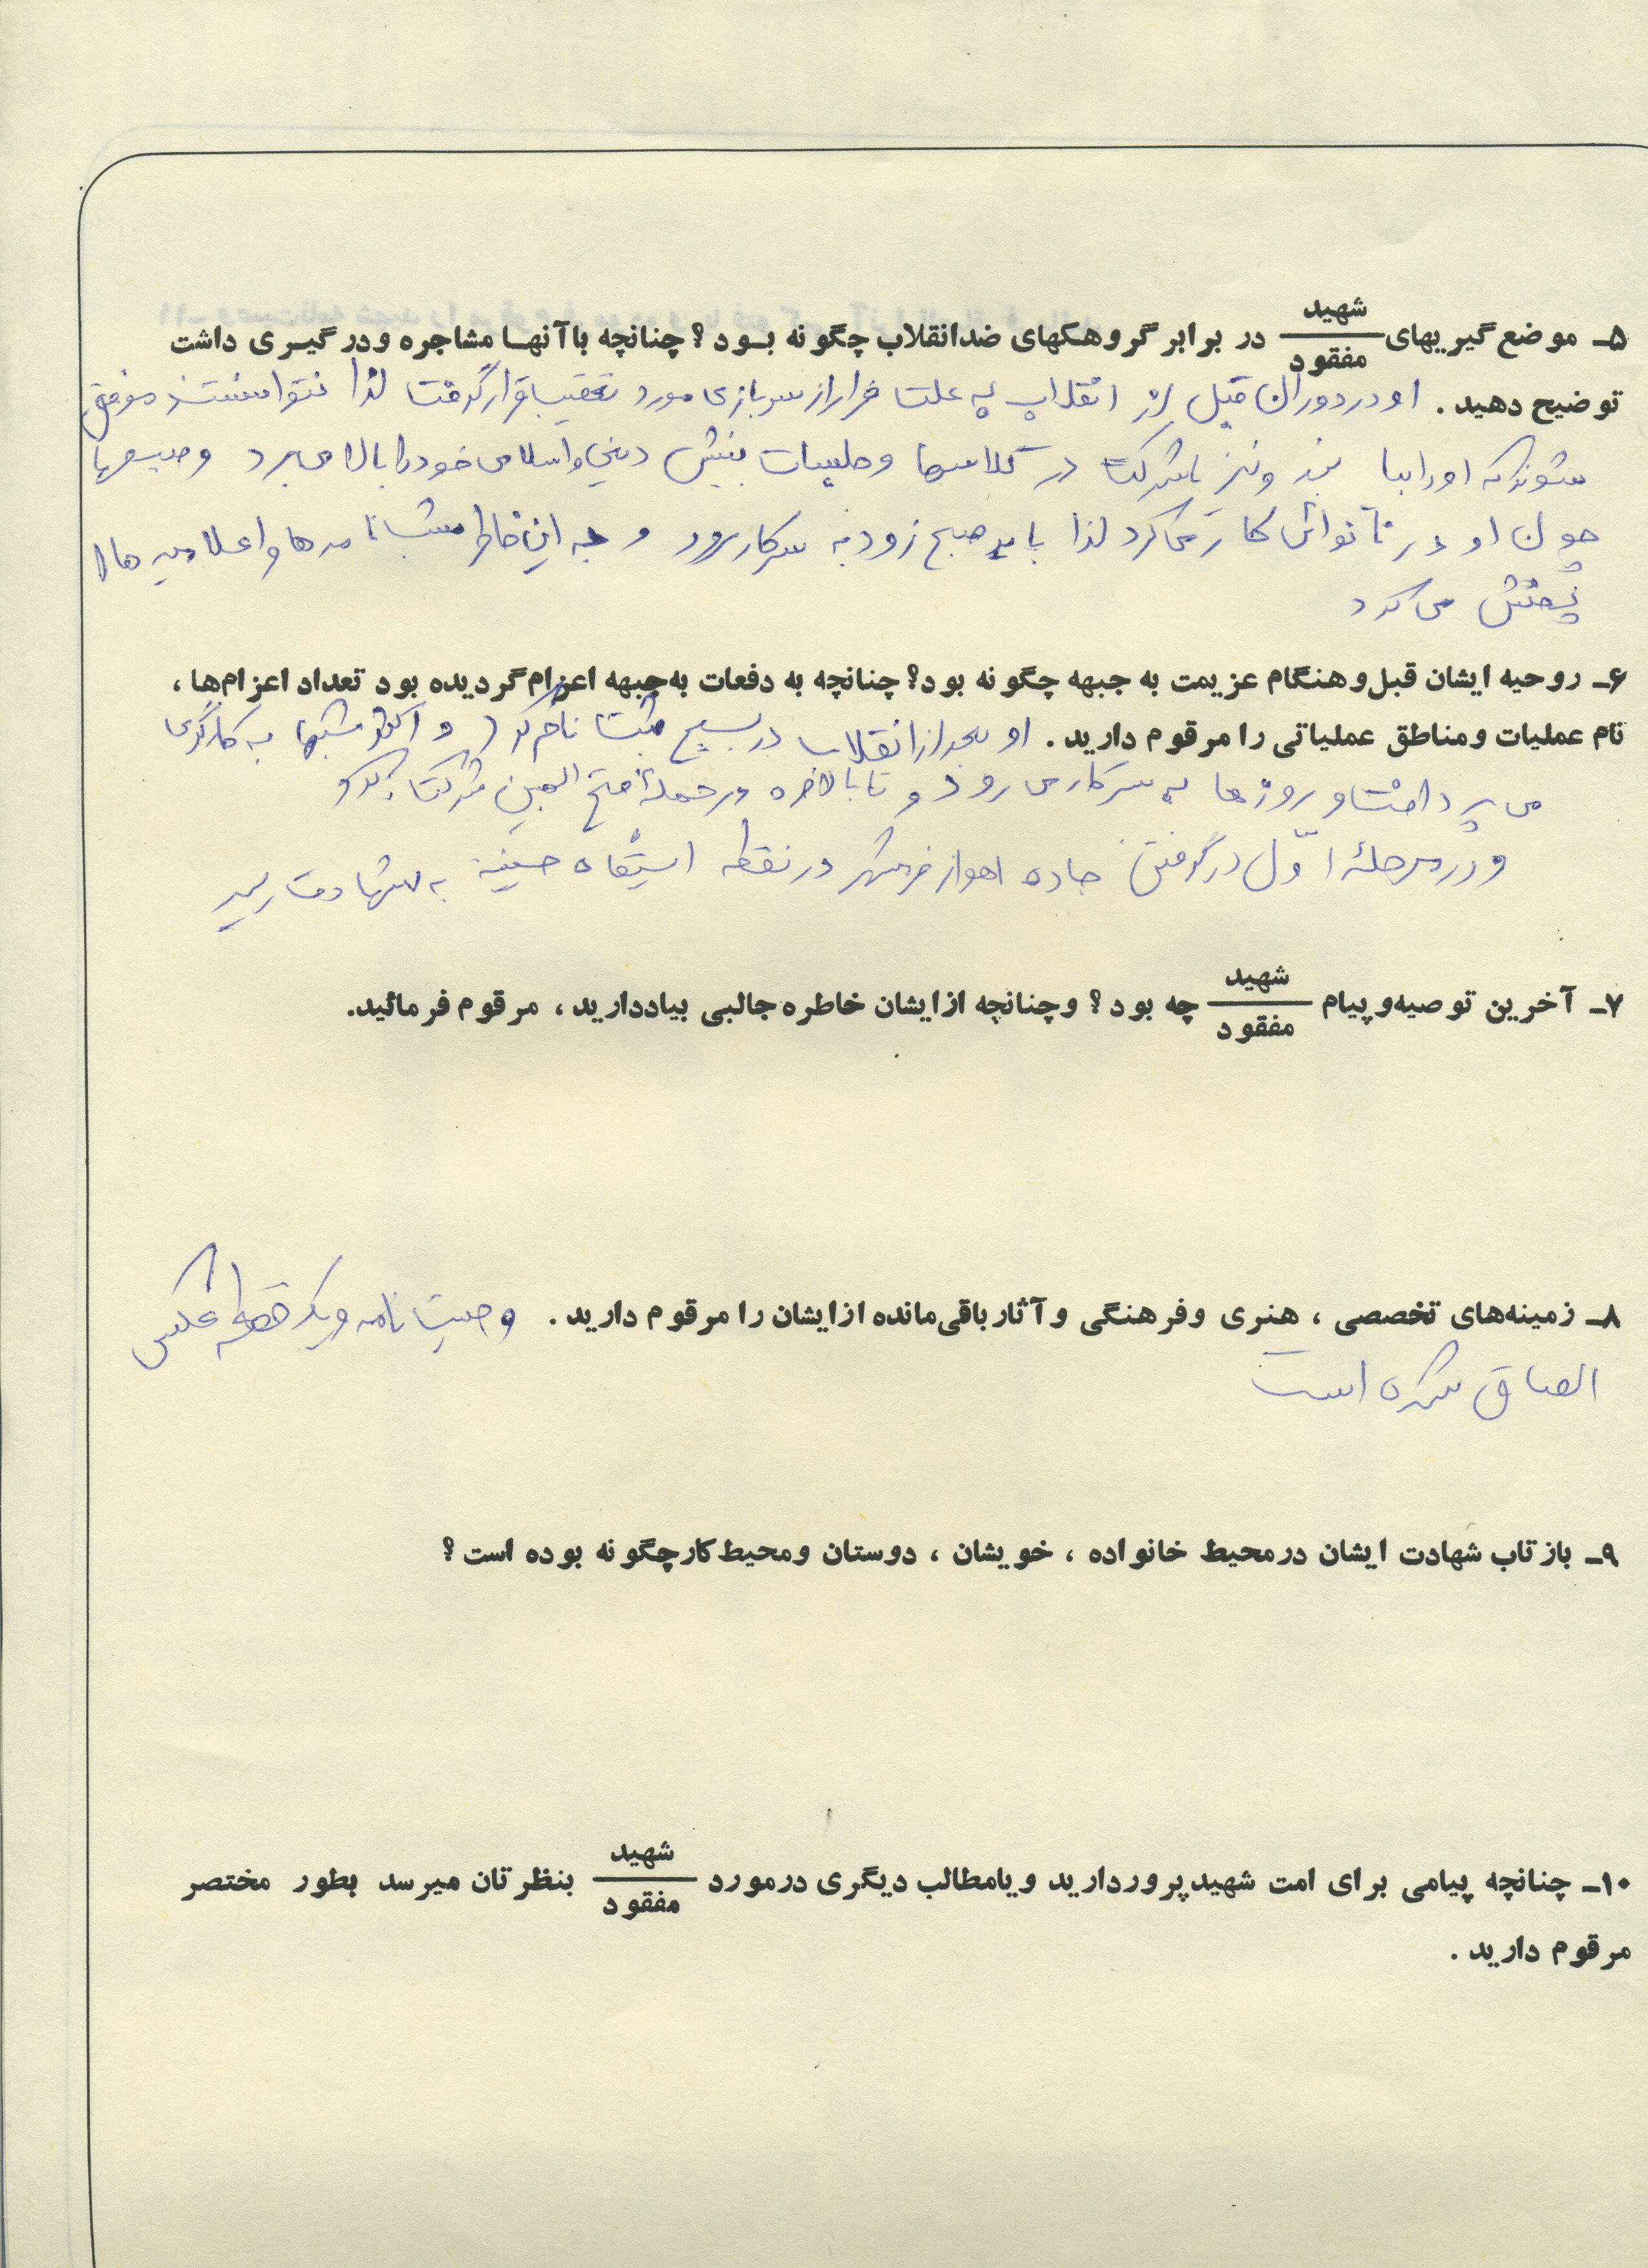 ۵ـ موضع‌گیریهای شهید / مفقود در برابر گروهکهای ضدانقلاب چگونه بود؟ چنانچه با آنها مشاجره و درگیری داشت
توضیح دهید. او در دوران قبل از انقلاب به علت فرار از سربازی مورد تعقیب قرار گرفت لذا نتوانستند موفق
شوند که او را بیابند و نیز با شرکت در کلاسها و جلسات بینش دینی و اسلامی خود را بالا می برد و صبحها
چون او در نانوائی کار می کرد لذا باید صبح زود به سرکار برود و به این خاطر شب‌نامه‌ها و اعلامیه ها را
پخش می کرد
۶ـ روحیه ایشان قبل و هنگام عزیمت به جبهه چگونه بود؟ چنانچه به دفعات به جبهه اعزام گردیده بود تعداد اعزام‌ها،
نام عملیات و مناطق عملیاتی را مرقوم دارید. او بعد از انقلاب در بسیج ثبت نام کرد و اکثر شبها به کارگری
می پرداخت و روزها به سرکار می رود و تا بالاخره در حملهٔ فتح المبین شرکت کرد و
و در مرحلهٔ اوّل در گرفتن جاده اهواز خرمشهر در نقطه ایستگاه حسینیه به شهادت رسید
۷ـ آخرین توصیه و پیام شهید / مفقود چه بود؟ و چنانچه از ایشان خاطره جالبی بیاد دارید، مرقوم فرمائید.
۸ـ زمینه‌های تخصصی، هنری و فرهنگی و آثار باقی‌مانده از ایشان را مرقوم دارید. وصیت نامه و یک قطعه عکس
الصاق شده است
۹ـ بازتاب شهادت ایشان در محیط خانواده، خویشان، دوستان و محیط کار چگونه بوده است؟
۱۰ـ چنانچه پیامی برای امت شهیدپرور دارید و یا مطالب دیگری در مورد شهید / مفقود بنظرتان میرسد بطور مختصر
مرقوم دارید.